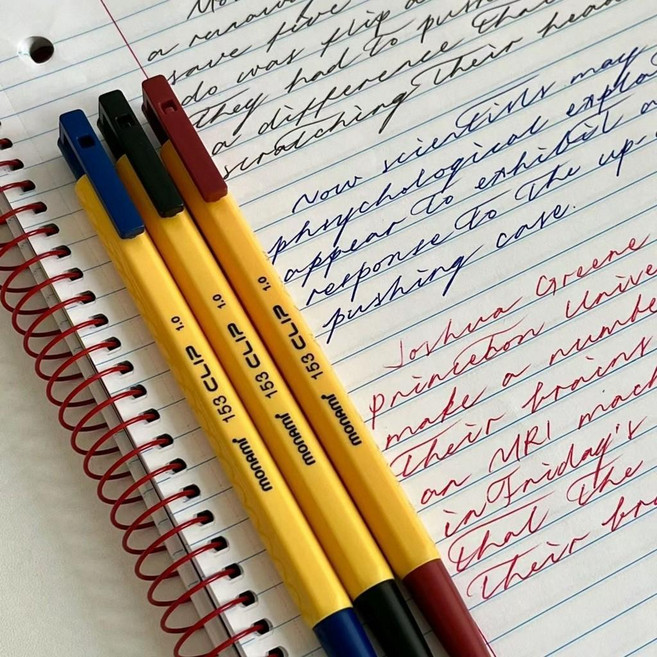 a runaway
save five
do was flip a
they had to push
a difference that
scratching their head
Now scientists may
phsychological explo
appear to exhibit a
response to the up-
pushing case.
Joshua Greene
princeton Unive
make a numbe
Their brains
an MRI mach
in Friday's
that the
Their bra
monami 153 CLIP 1.0
monami 153 CLIP 1.0
monami 153 CLIP 1.0